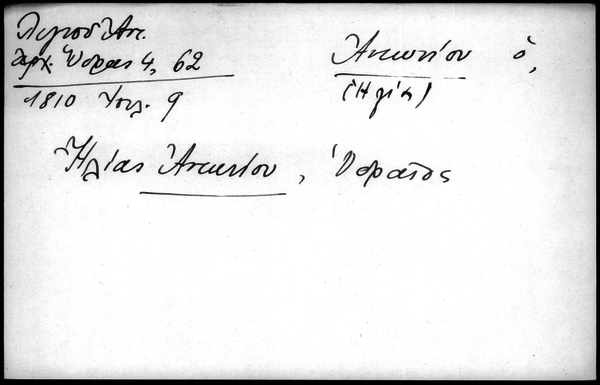 Λιγνοῦ Ἀν.
Ἀρχ. Ὕδρας 4, 62
1810 Ἰουλ. 9
Ἀντωνίου ὁ,
(Ἠλία)
Ἠλίας Ἀντωνίου, Ὑδραῖος